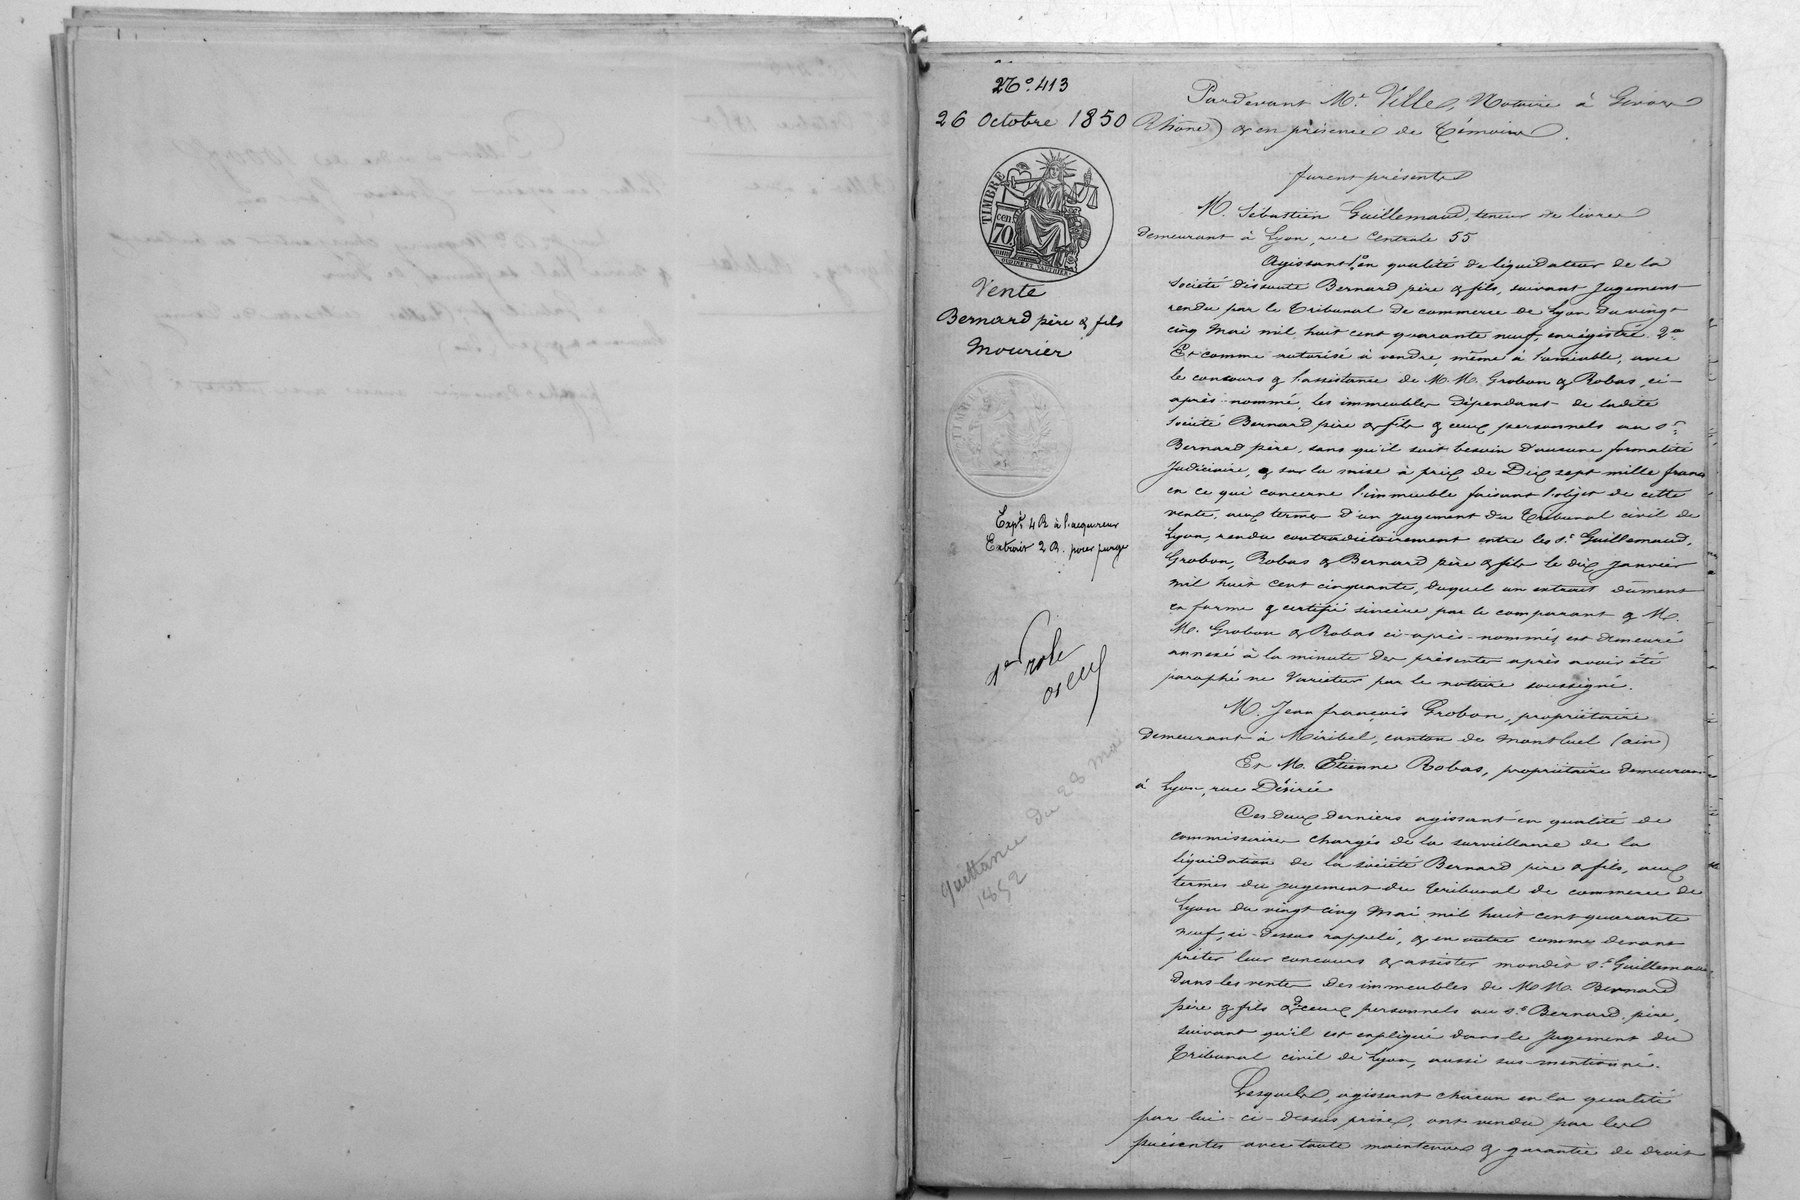 N.º 413
26 Octobre 1850
TIMBRE
70
cen
Vente
Bernard père & fils
Mourier
TIMBRE
Exp.on 4 R. à l'acquéreur
Extrait 2 R. pour purge
1er role
Quittance du 28 mai
1852
Pardevant Me Ville, Notaire à Givors
(Rhône) & en présence de témoins.
furent présents
M. Sébastien Guillemaud, teneur de livres
demeurant à Lyon, rue Centrale 55
Agissant 1.º en qualité de liquidateur de la
société dissoute Bernard père & fils, suivant jugement
rendu par le tribunal de commerce de Lyon du vingt
cinq Mai mil huit cent quarante neuf, enrégistré. 2.º
Et comme autorisé à vendre, même à l'amiable, avec
le concours & l'assistance de M.M. Grobon & Robas, ci-
après nommé, les immeubles dépendant de ladite
société Bernard père & fils & ceux personnels au Sr
Bernard père, sans qu'il soit besoin d'aucune formalité
judiciaire, & sur la mise à prix de Dix sept mille francs
en ce qui concerne l'immeuble faisant l'objet de cette
vente, aux termes d'un jugement du tribunal civil de
Lyon, rendu contradictoirement entre les Srs Guillemaud,
Grobon, Robas & Bernard père & fils le dix janvier
mil huit cent cinquante, duquel un extrait dûment
en forme & certifié sincère par le comparant & M.
M. Grobon & Robas ci-après-nommés, est demeuré
annexé à la minute des présentes après avoir été
paraphé ne varietur par le notaire soussigné.
M. Jean françois Grobon, propriétaire
demeurant à Miribel, canton de Montluel (ain)
Et M. Etienne Robas, propriétaire demeurant
à Lyon, rue Désirée
Ces deux derniers agissant en qualité de
commissaires chargés de la surveillance de la
liquidation de la société Bernard père & fils, aux
termes du jugement du tribunal de commerce de
Lyon du vingt cinq Mai mil huit cent quarante
neuf, ci-dessus rappelé, & en outre comme devant
prêter leur concours & assister mondit Sr Guillemaud
dans les ventes des immeubles de MM. Bernard
père & fils & de ceux personnels au Sr Bernard père,
suivant qu'il est expliqué dans le jugement du
tribunal civil de Lyon, aussi sus-mentionné.
Lesquels, agissant chacun en la qualité
par lui-ci-dessus prise, ont vendu par les
présentes avec toute maintenue & garantie de droit